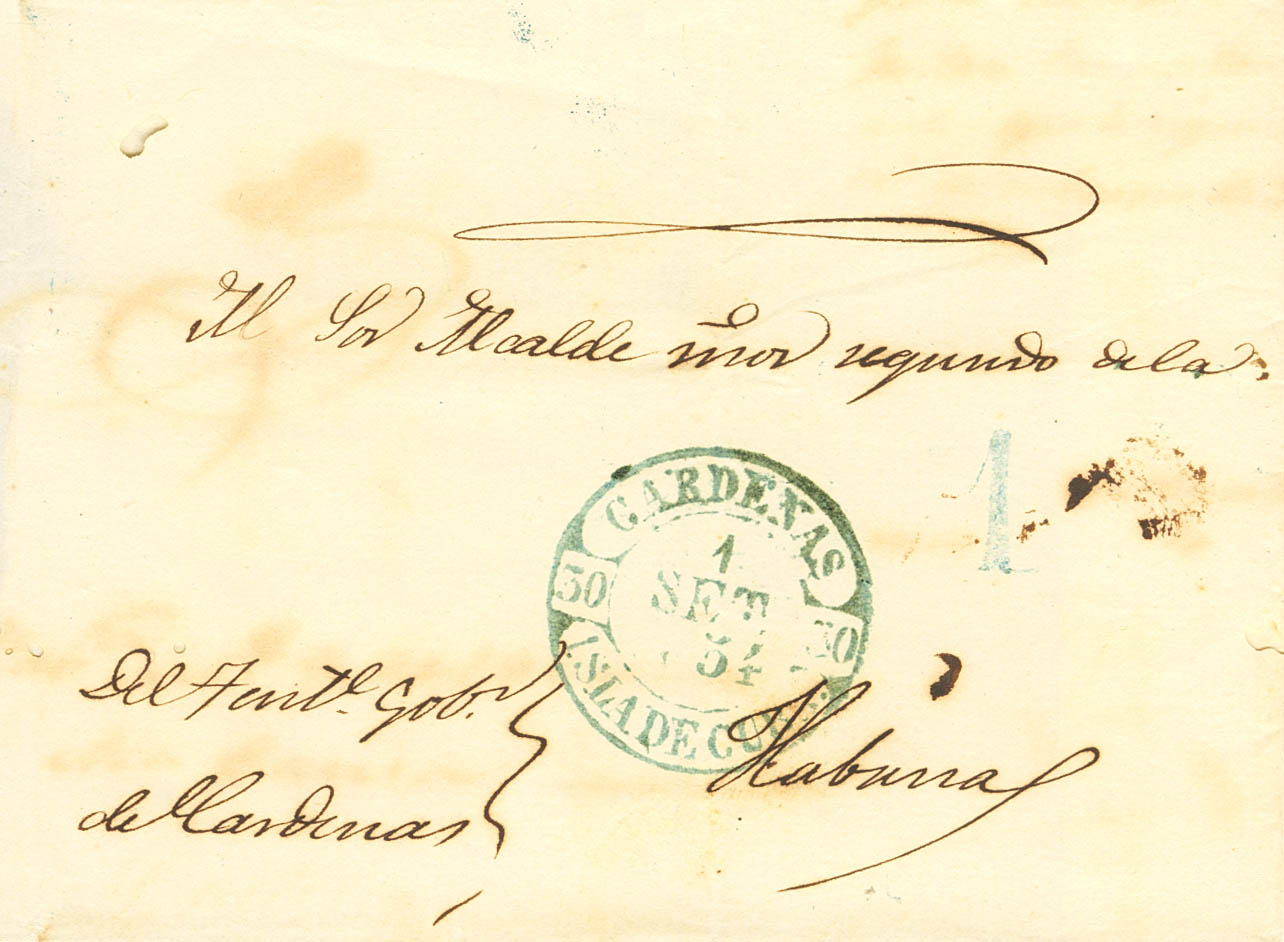 Al Sor Alcalde mor segundo dela
1
CARDENAS
1
SET
54
30
30
ISLA DE CUBA
Del Tente. Gobr.
de Cardenas
Habana